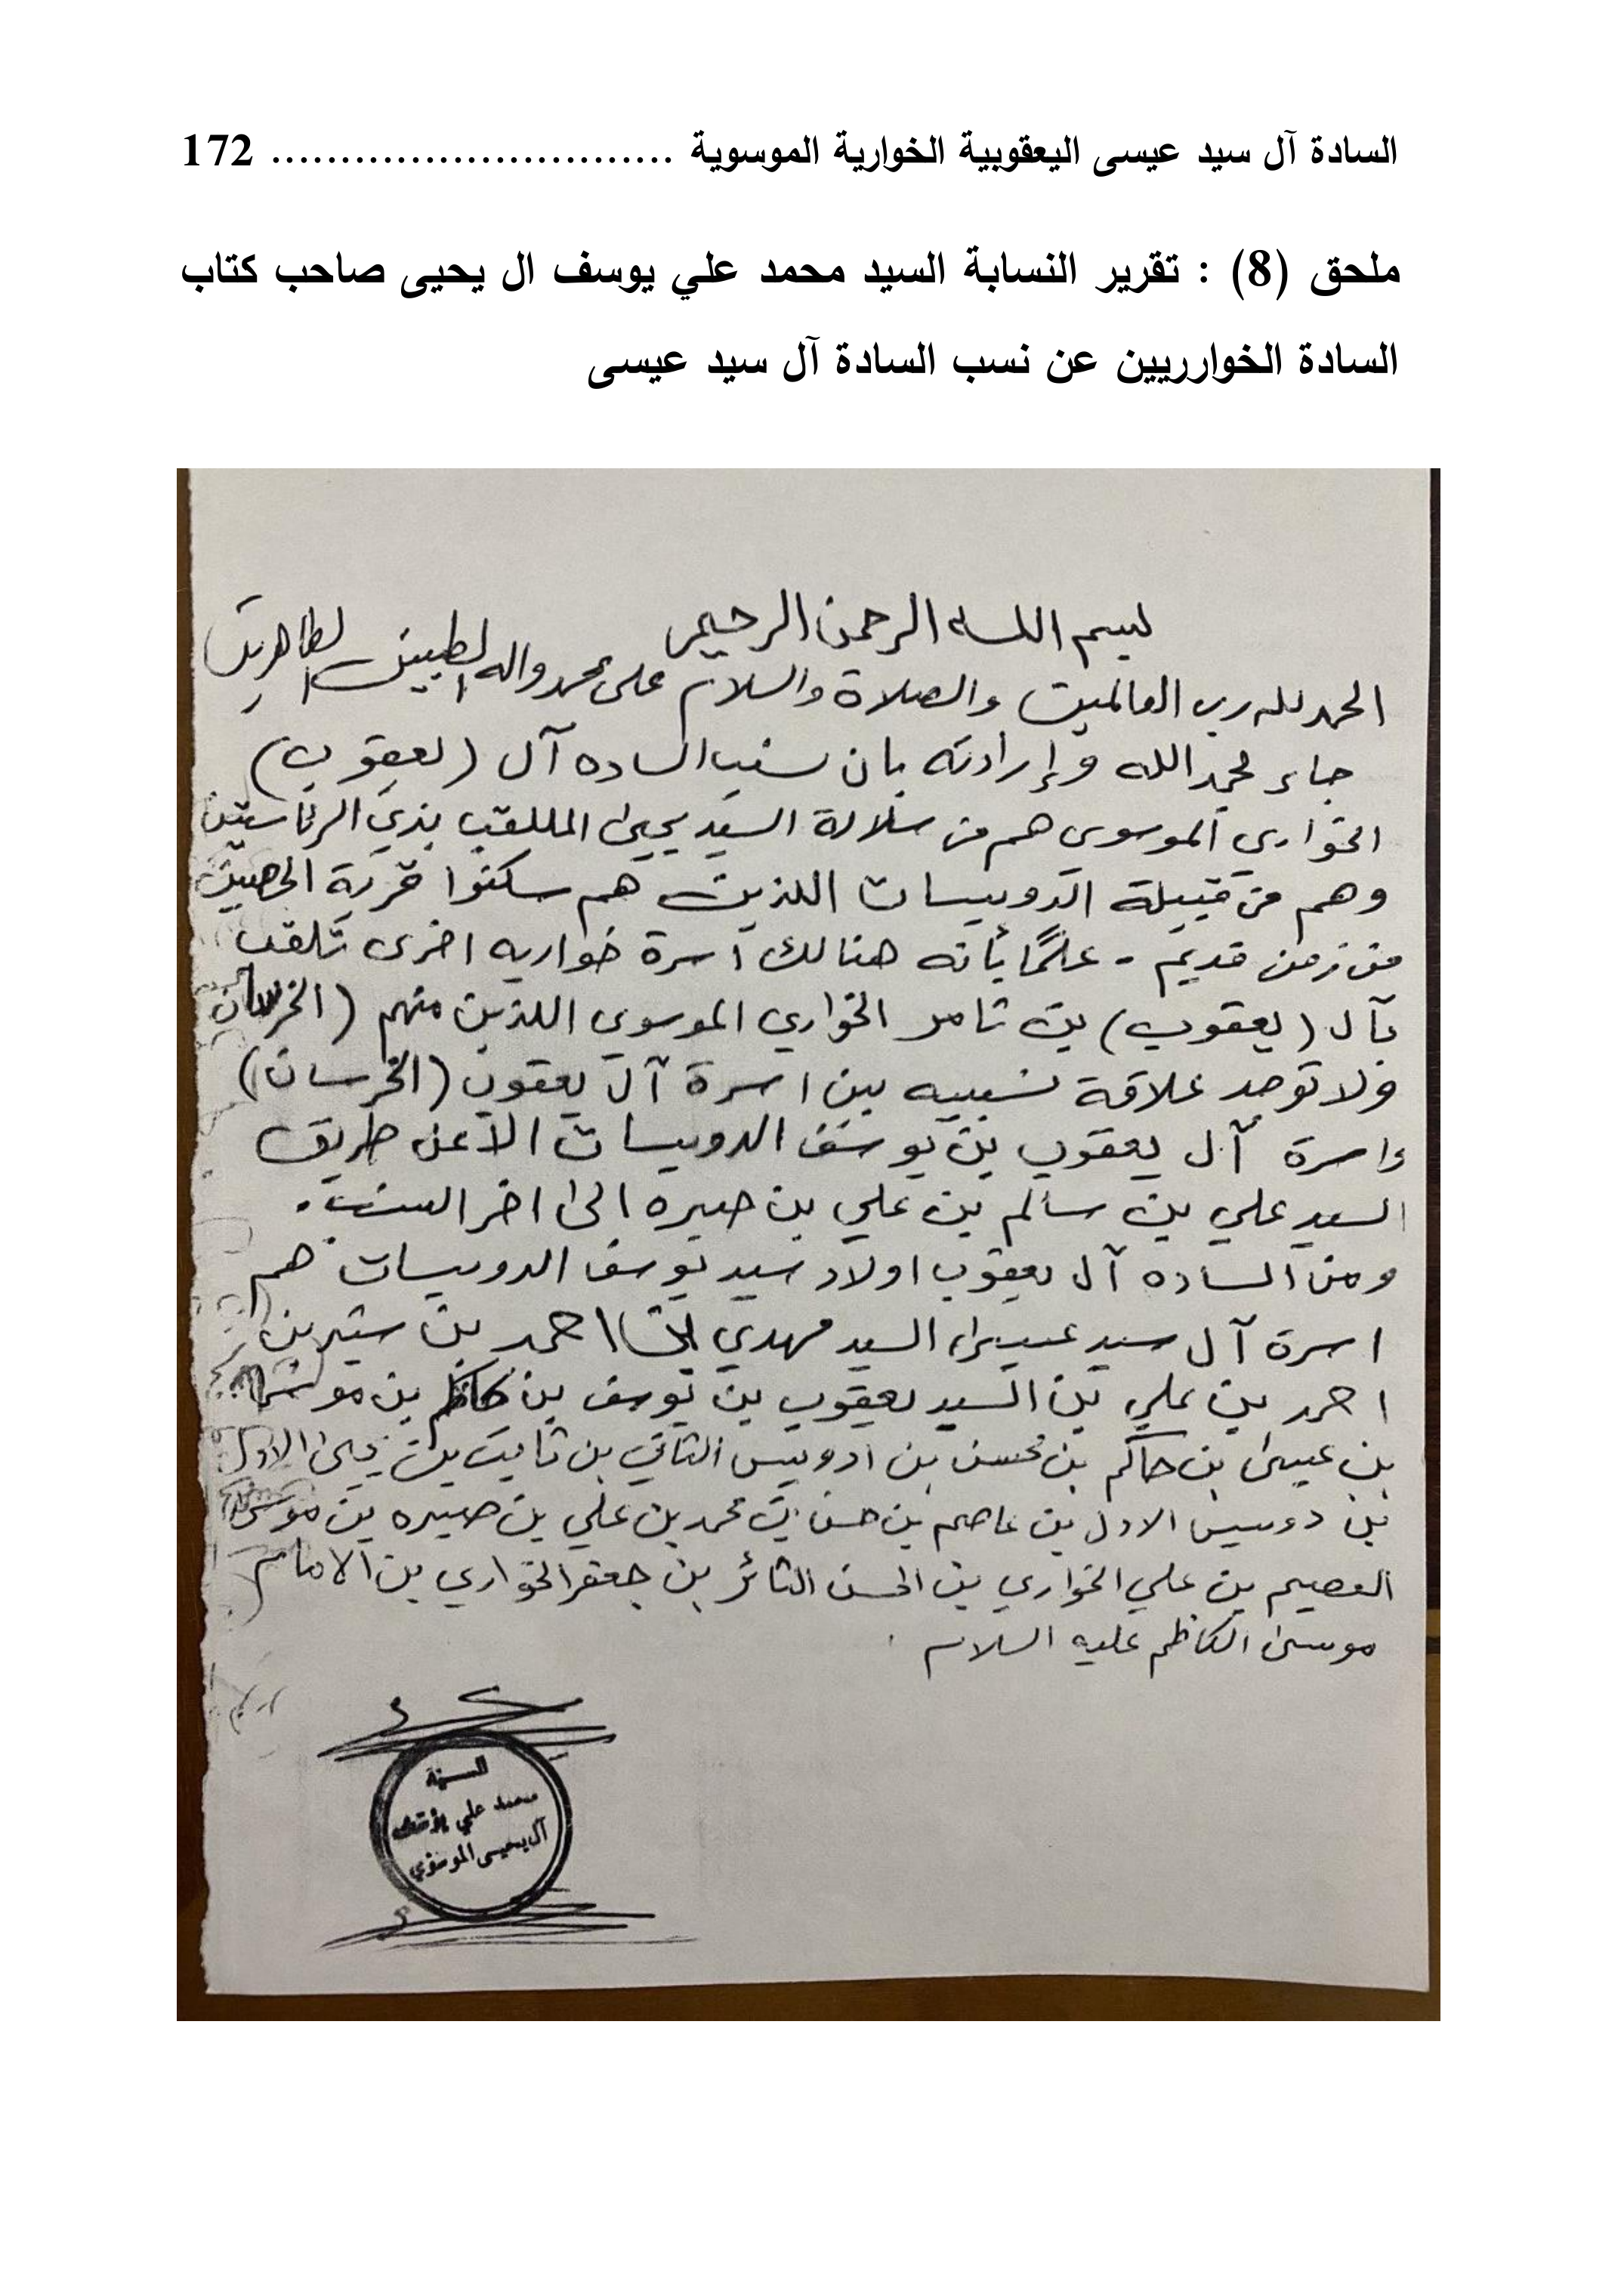 السادة آل سيد عيسى اليعقوبية الخوارية الموسوية ............................. 172
ملحق (8) : تقرير النسابة السيد محمد علي يوسف ال يحيى صاحب كتاب
السادة الخوارريين عن نسب السادة آل سيد عيسى
بسم الله الرحمن الرحيم
الحمد لله رب العالمين والصلاة والسلام على محمد واله الطيبين الطاهرين
جاء بحمد الله وإرادته بان نسب الساده آل (يعقوب)
الخواري الموسوي هم من سلالة السيد يحيى الملقب بذي الرئاستين
وهم من قبيلة الدويسات اللذين هم سكنوا قرية الحصين
من زمن قديم - علمًا بأنه هنالك اسرة خواريه اخرى تلقب
بآل (يعقوب) بن ثامر الخواري الموسوي اللذين منهم (الخرسان)
ولا توجد علاقة نسبيه بين اسرة آل يعقوب (الخرسان)
واسرة آل يعقوب بن يوسف الدويسات الا عن طريق
السيد علي بن سالم بن علي بن صبره الى اخر النسب.
ومن الساده آل يعقوب اولاد سيد يوسف الدويسات هم
اسرة آل سيد عيسى السيد مهدي احمد بن بن
احمد بن علي بن السيد يعقوب بن يوسف بن كاظم بن موسى
بن عيسى بن حاكم بن محسن بن ادويس الثاني بن ثابت بن يحيى الاول
بن دويس الاول بن عاصم بن حسن بن محمد بن علي بن صبره بن موسى
العصيم بن علي الخواري بن الحسن الثائر بن جعفر الخواري بن الامام
موسى الكاظم عليه السلام
محمد علي يوسف
آل يحيى الموسوي